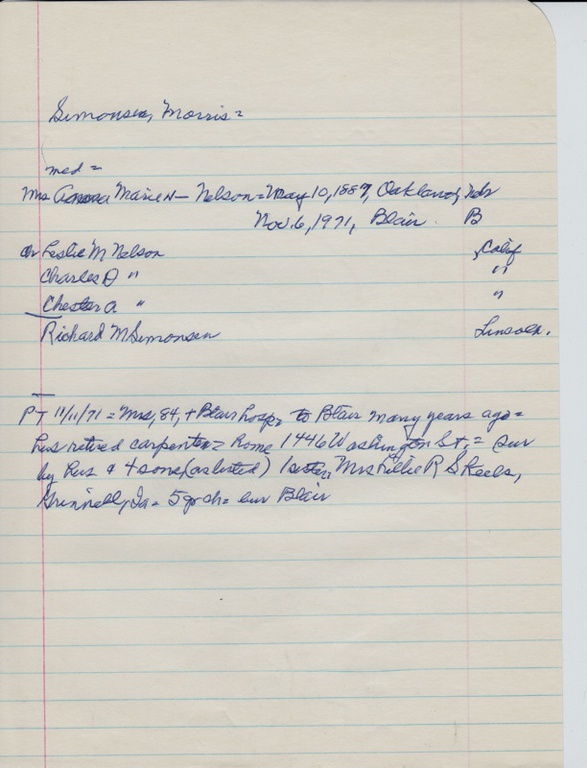 Simonsen, Morris =
med =
Mrs Marie N - Nelson = May 10, 1887, Oakland, Nebr
Nov. 6, 1971, Blair B
ch Leslie M Nelson , Calif
Charles D " "
Chester A " "
Richard M Simonsen Lincoln.
PT 11/11/71 = Mrs, 84, + Blair hosp, to Blair many years ago =
hus retired carpenter = home 1446 Washington St, = sur
by hus & 4 sons, (as listed) 1 sister, Mrs Lillie R
Grinnell, Ia = 5 gr ch = bur Blair